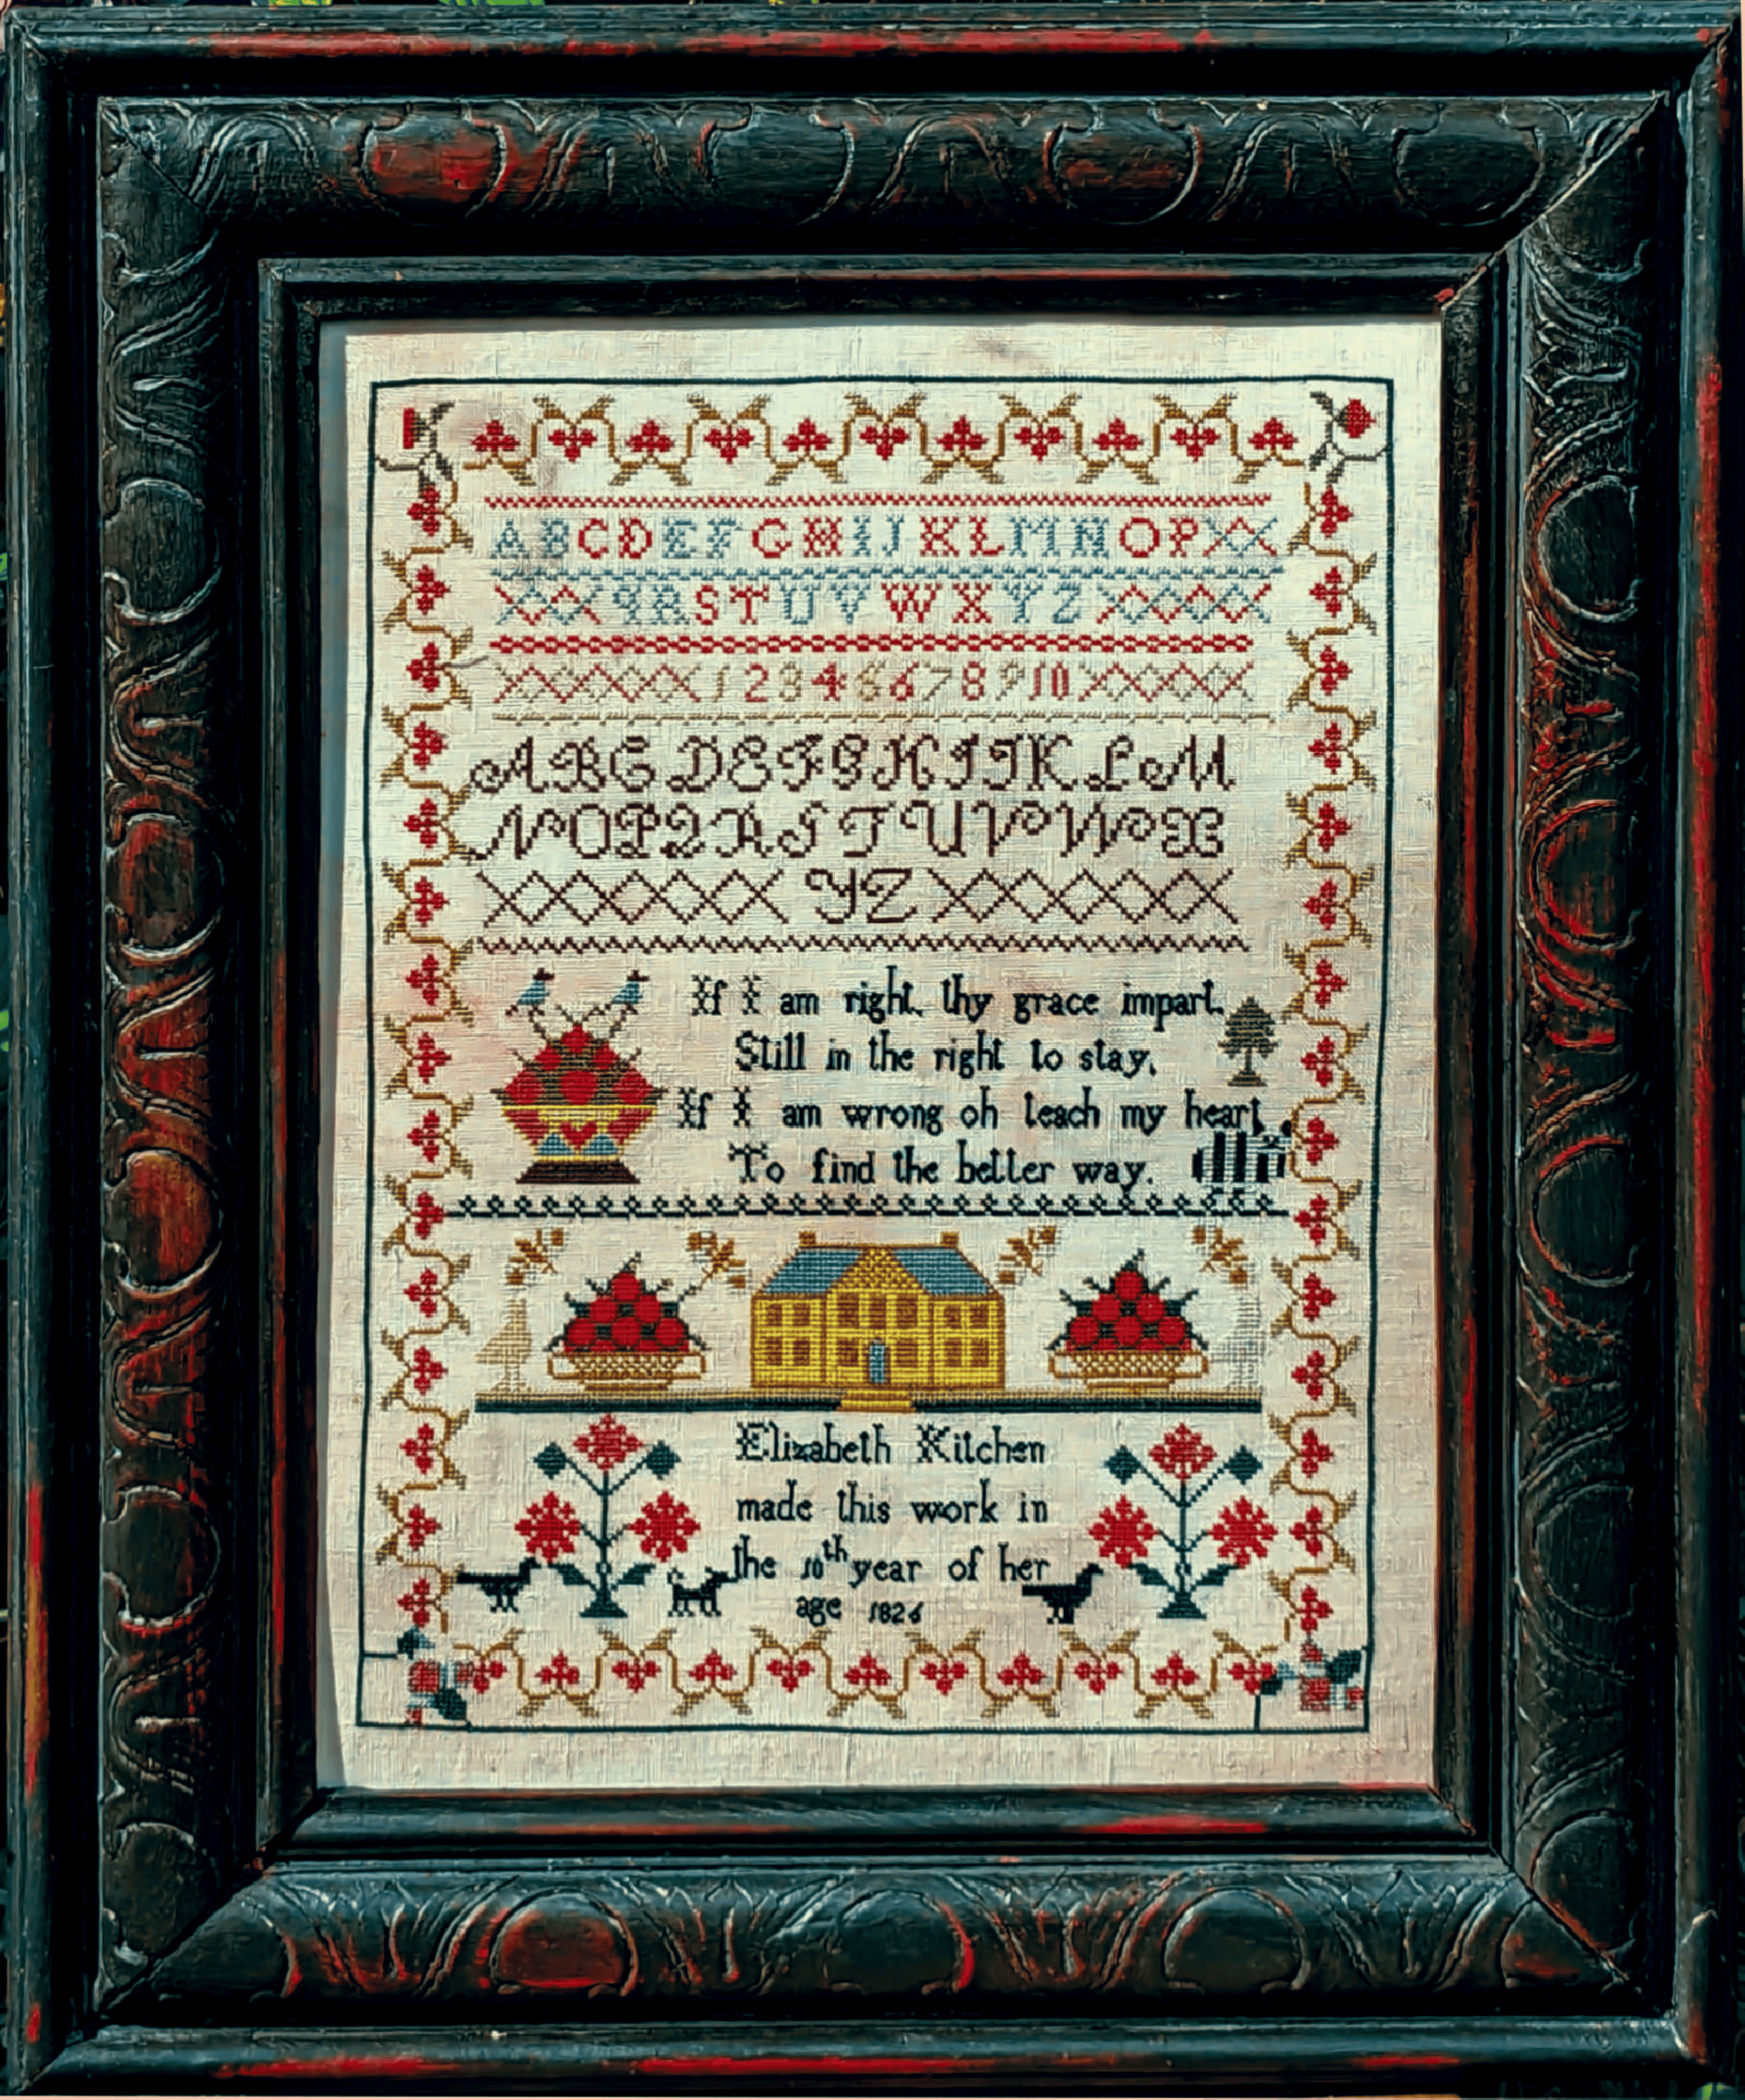 A B C D E F G H I J K L M N O P
Q R S T U V W X Y Z
1 2 3 4 5 6 7 8 9 10
A B C D E F G H I J K L M
N O P Q R S T U V W X
Y Z
If I am right, thy grace impart,
Still in the right to stay,
If I am wrong oh teach my heart,
To find the better way.
Elizabeth Kitchen
made this work in
the 10th year of her
age 1826